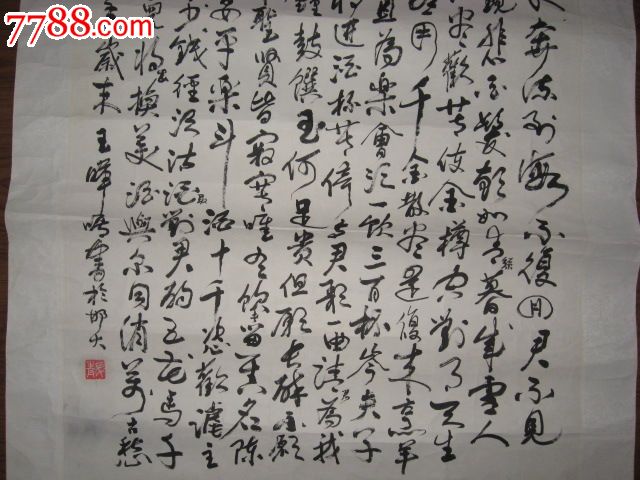 7788.com
奔流到海不復回君不見
鏡悲白髮朝如青絲暮成雪人
盡歡莫使金樽空對月天生
用千金散盡還復來烹羊
且為樂會須一飲三百杯岑夫子
將進酒杯莫停與君歌一曲請君為我
鐘鼓饌玉何足貴但願長醉不願
聖賢皆寂寞唯有飲者留其名陳
宴平樂斗酒十千恣歡謔主
少錢徑須沽取對君酌五花馬千
將換美酒與爾同消萬古愁
歲末王暉書於邯大